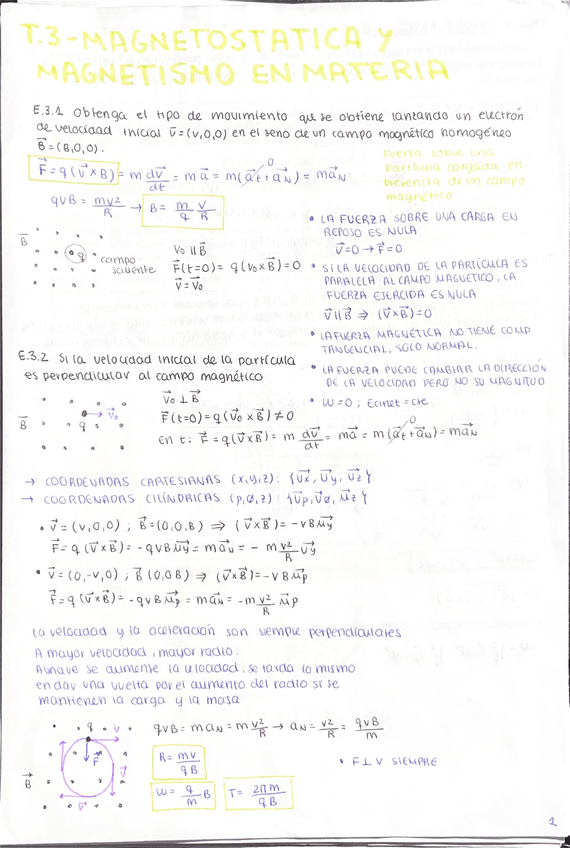 T.3-MAGNETOSTATICA Y
MAGNETISMO EN MATERIA
E.3.1 Obtenga el tipo de movimiento que se obtiene lanzando un electrón
de velocidad inicial v⃗=(v,0,0) en el seno de un campo magnético homogéneo
B⃗=(B,0,0).
Fuerza sobre una
partícula cargada en
presencia de un campo
magnético
F⃗=q(v⃗×B⃗) = m dv⃗/dt = m a⃗ = m(a⃗t+a⃗N) = m a⃗N
0
qvB = mv²/R → B = m/q v/R
B⃗
q
campo
saliente
V0 ∥ B⃗
F⃗(t=0) = q(v0×B⃗)=0
V⃗ = V⃗0
• LA FUERZA SOBRE UNA CARGA EN
REPOSO ES NULA
V⃗=0 → F⃗=0
• SI LA VELOCIDAD DE LA PARTÍCULA ES
PARALELA AL CAMPO MAGNETICO, LA
FUERZA EJERCIDA ES NULA
V⃗∥B⃗ ⇒ (V⃗×B⃗)=0
• LA FUERZA MAGNÉTICA NO TIENE COMP
TANGENCIAL, SOLO NORMAL.
• LA FUERZA PUEDE CAMBIAR LA DIRECCIÓN
DE LA VELOCIDAD PERO NO SU MAGNITUD
• W=0 ; Ecinet=cte
E.3.2 Si la velocidad inicial de la partícula
es perpendicular al campo magnético
B⃗
q
V⃗0
V⃗0 ⊥ B⃗
F⃗(t=0)=q(V⃗0×B⃗)≠0
en t: F⃗=q(V⃗×B⃗)= m dV⃗/dt = m a⃗ = m(a⃗t+a⃗N)=m a⃗N
0
→ COORDENADAS CARTESIANAS (x,y,z): {u⃗x, u⃗y, u⃗z}
→ COORDENADAS CILÍNDRICAS (ρ,ø,z): {u⃗ρ, u⃗ø, u⃗z}
• v⃗=(v,0,0) ; B⃗=(0,0,B) ⇒ (v⃗×B⃗)= -vB u⃗y
F⃗=q(v⃗×B⃗)= -qvB u⃗y = m a⃗N = -m v²/R u⃗y
• v⃗=(0,-v,0) ; B⃗(0,0B) ⇒ (v⃗×B⃗)=-vB u⃗ρ
F⃗=q(v⃗×B⃗)= -qvB u⃗ρ = m a⃗N = -m v²/R u⃗ρ
La velocidad y la aceleración son siempre perpendiculares
A mayor velocidad, mayor radio.
Aunque se aumente la velocidad, se tarda lo mismo
en dar una vuelta por el aumento del radio si se
mantienen la carga y la masa
B⃗
q
v⃗
F⃗
v⃗
v⃗
qvB = m aN = m v²/R → aN = v²/R = qvB/m
R = mv/qB
• F⊥V SIEMPRE
W = q/m B
T = 2πm/qB
1